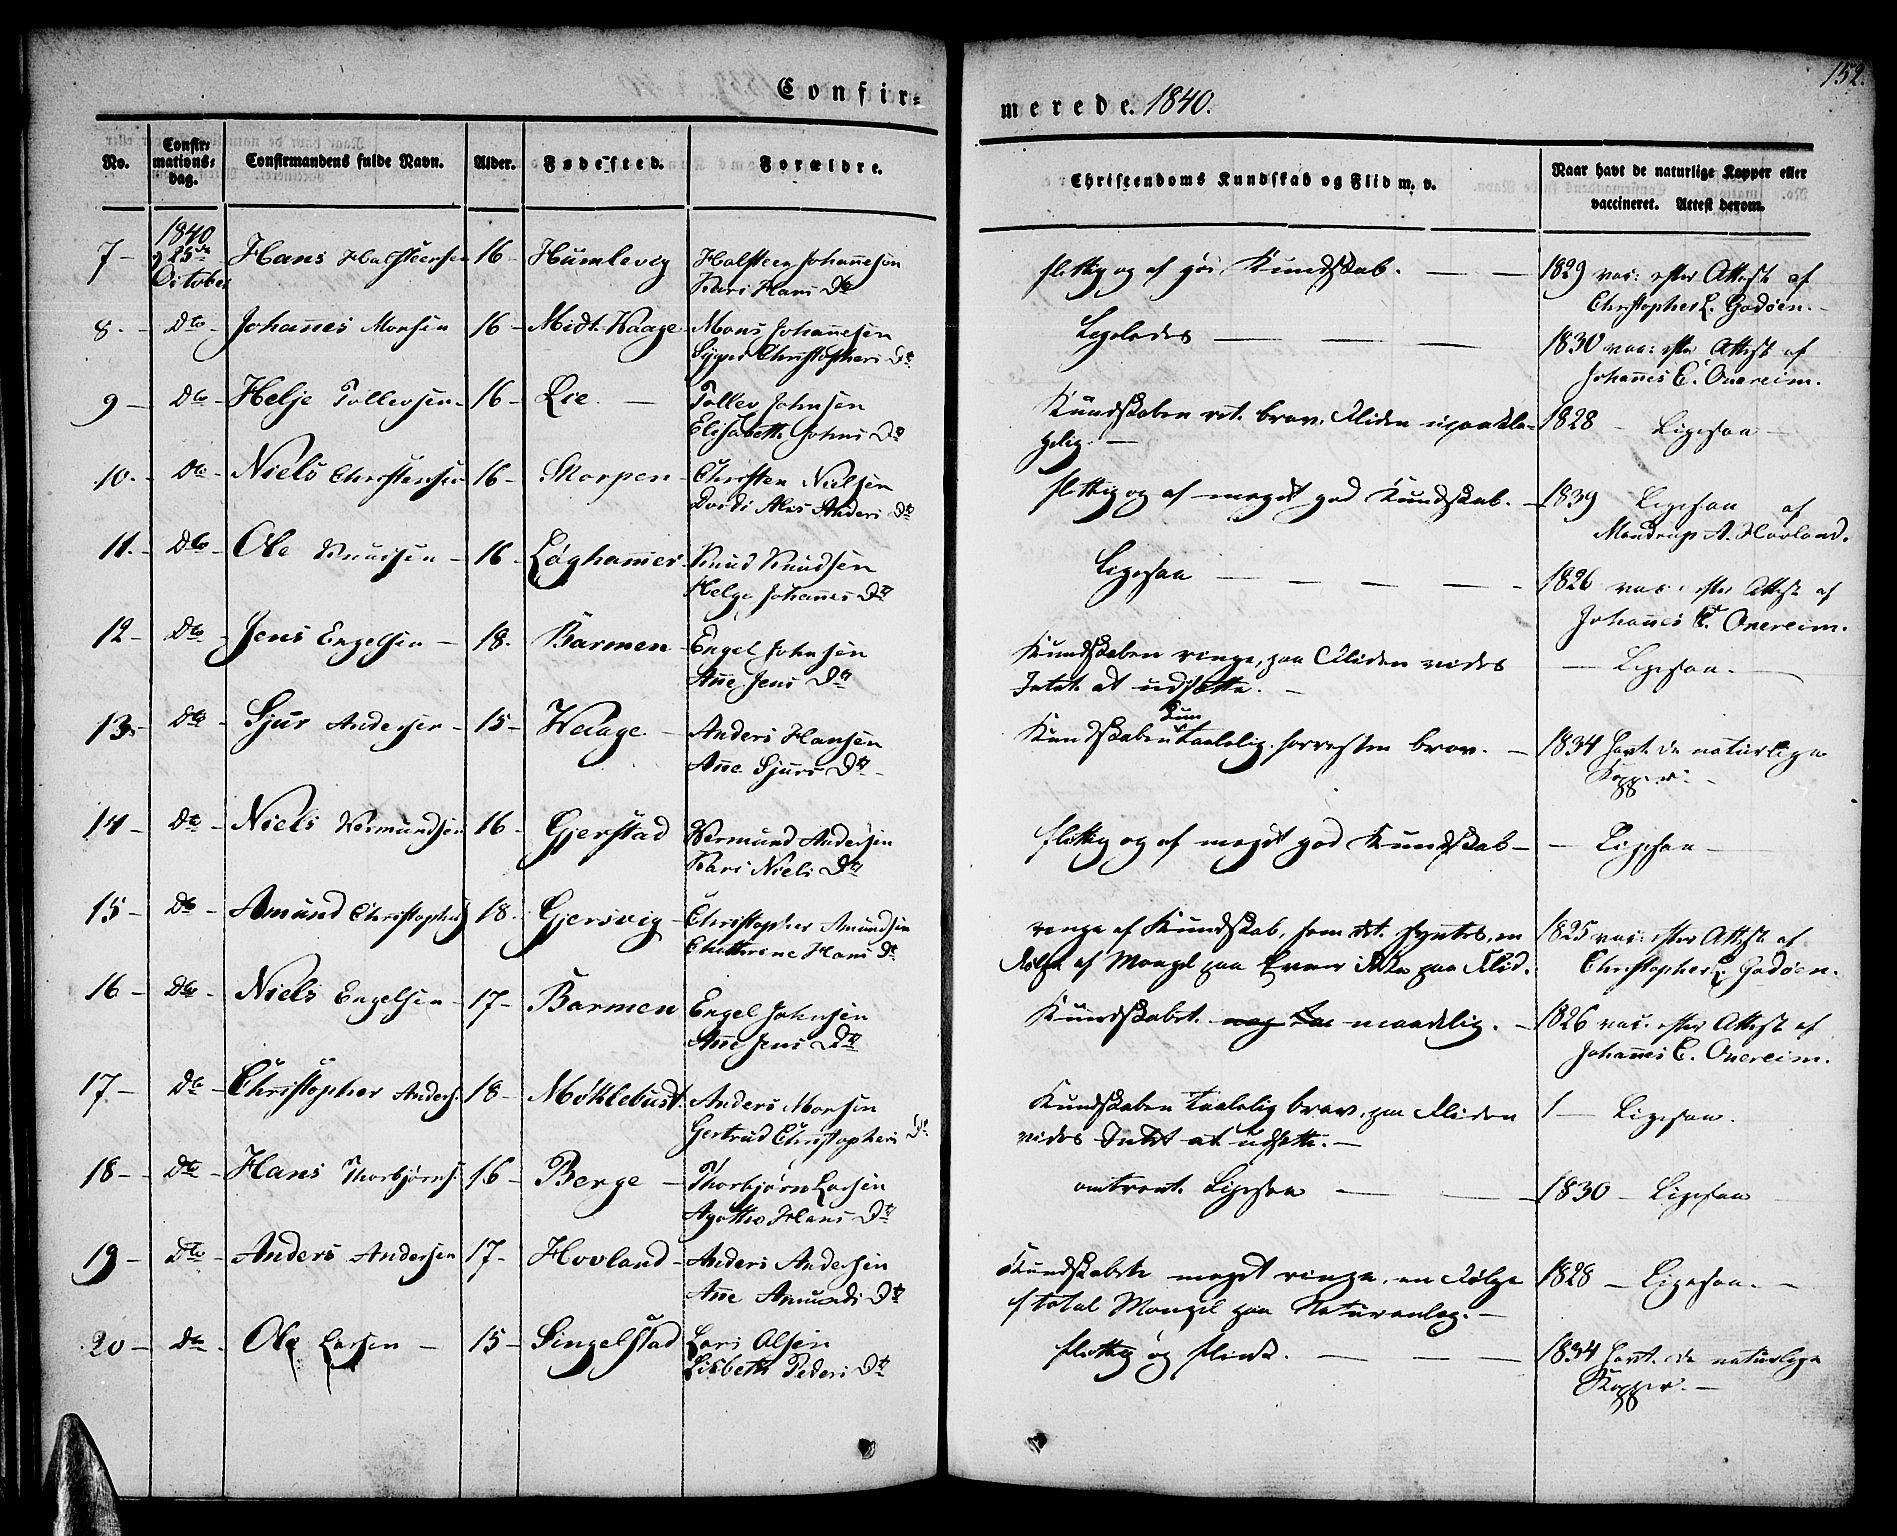 152.
Confir= merede. 1840.
No. Confir= mations= dag. Confirmandens fulde Navn. Alder. Fødested. Forældre. Christendoms Kundskab og Flid m. v. Naar havt de naturlige Kopper eller vaccineret. Attest derom.
1840
7 - 25de October Hans Halsteensen 16 - Humlevig Halsteen Johannesen
Kari Hans Dtr
flittig og af god Kundskab. - - 1829 vac: efter Attest af
Christopher L. Godøen. -
8. - Dto - Johannes Monsen 16 - Midt-Waage - Mons Johannesen
Christophers Dtr
Ligeledes - - - 1830 vac: efter Attest af
Johannes E. Onereim.
9 - Dto - Helje Tollevsen - 16 - Lie. - Tollev Johnsen
Elisabeth Johns Dtr
Kundskaben ret brav, Fliden upaakla-
gelig. - 1828 - Ligesaa -
10. - Dto - Niels Christensen 16 - Skorpen - Christen Nielsen
Anders Dtr
flittig og af meget god Kundskab. - 1839 Ligesaa af
Mandrup A. Hovland.
11. - Dto - Ole Knudsen - 16 - Løghammer - Knud Knudsen
Helge Johannes Dtr
Ligesaa - - - - 1826 vac: efter Attest af
Johannes E. Onereim.
12 - Dto - Jens Engelsen - 18. - Barmen - Engel Johnsen
Ane Jens Dtr
Kundskaben ringe, paa Fliden vides
Intet at udsætte. - - Ligesaa. -
13. - Dto - Sjur Andersen - 15 - Waage - Anders Hansen
Ane Sjurs Dtr -
Kundskaben kun taalelig. forresten brav. - 1834 havt de naturlige
Kopper. -
14 - Dto - Niels Wermundsen 16 - Gjerstad Wermund Andersen
Kari Niels Dtr
flittig og af meget god Kundskab - - Ligesaa -
15 - Dto - Amund Christophers 18. Gjersvig - Christopher Amundsen
Cathrine Hans Dtr
ringe af Kundskab, som det syntes, en
Følge af Mangel paa Evner ikke paa Flid. 1825 vac: efter Attest af
Christopher L. Godøen.
16 - Dto - Niels Engelsen - 17 - Barmen Engel Johnsen
Ane Jens Dtr
Kundskabet maadelig. - 1826 vac: efter Attest af
Johannes E. Onereim.
17. - Dto - Christopher Anders. 18 - Møklebust. Anders Monsen
Gertrud Christophers Dtr
Kundskaben taalelig brav, paa Fliden
vides Intet at udsætte. - - Ligesaa.
18 - Dto - Hans Thorbjørns. 16 - Berge - Thorbjørn Larsen
Agathe Hans Dtr
omtrent Ligesaa - - - 1830 - Ligesaa
19 - Dto - Anders Andersen 17 - Hovland - Anders Andersen
Ane Amunds Dtr
Kundskabet meget ringe, en Følge
af total Mangel paa Naturanlæg. - 1828 - Ligesaa. -
20 - Dto - Ole Larsen - 15 - Singelstad Lars Olsen
Lisbeth Peders Dtr
flittig og flink. - - - 1834 havt de naturlige
Kopper. -